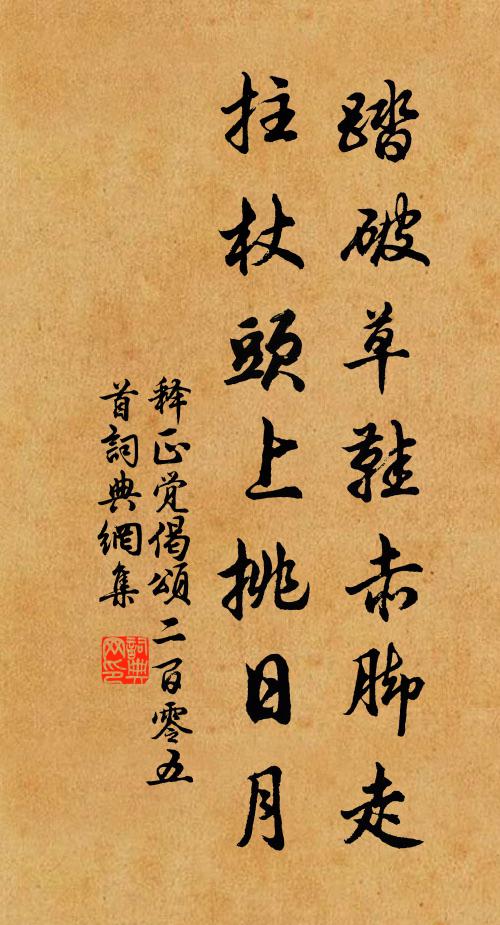 踏破草鞋赤脚走
拄杖頭上挑日月
释正觉偈頌二百零五
首詞典網集
詞典网印